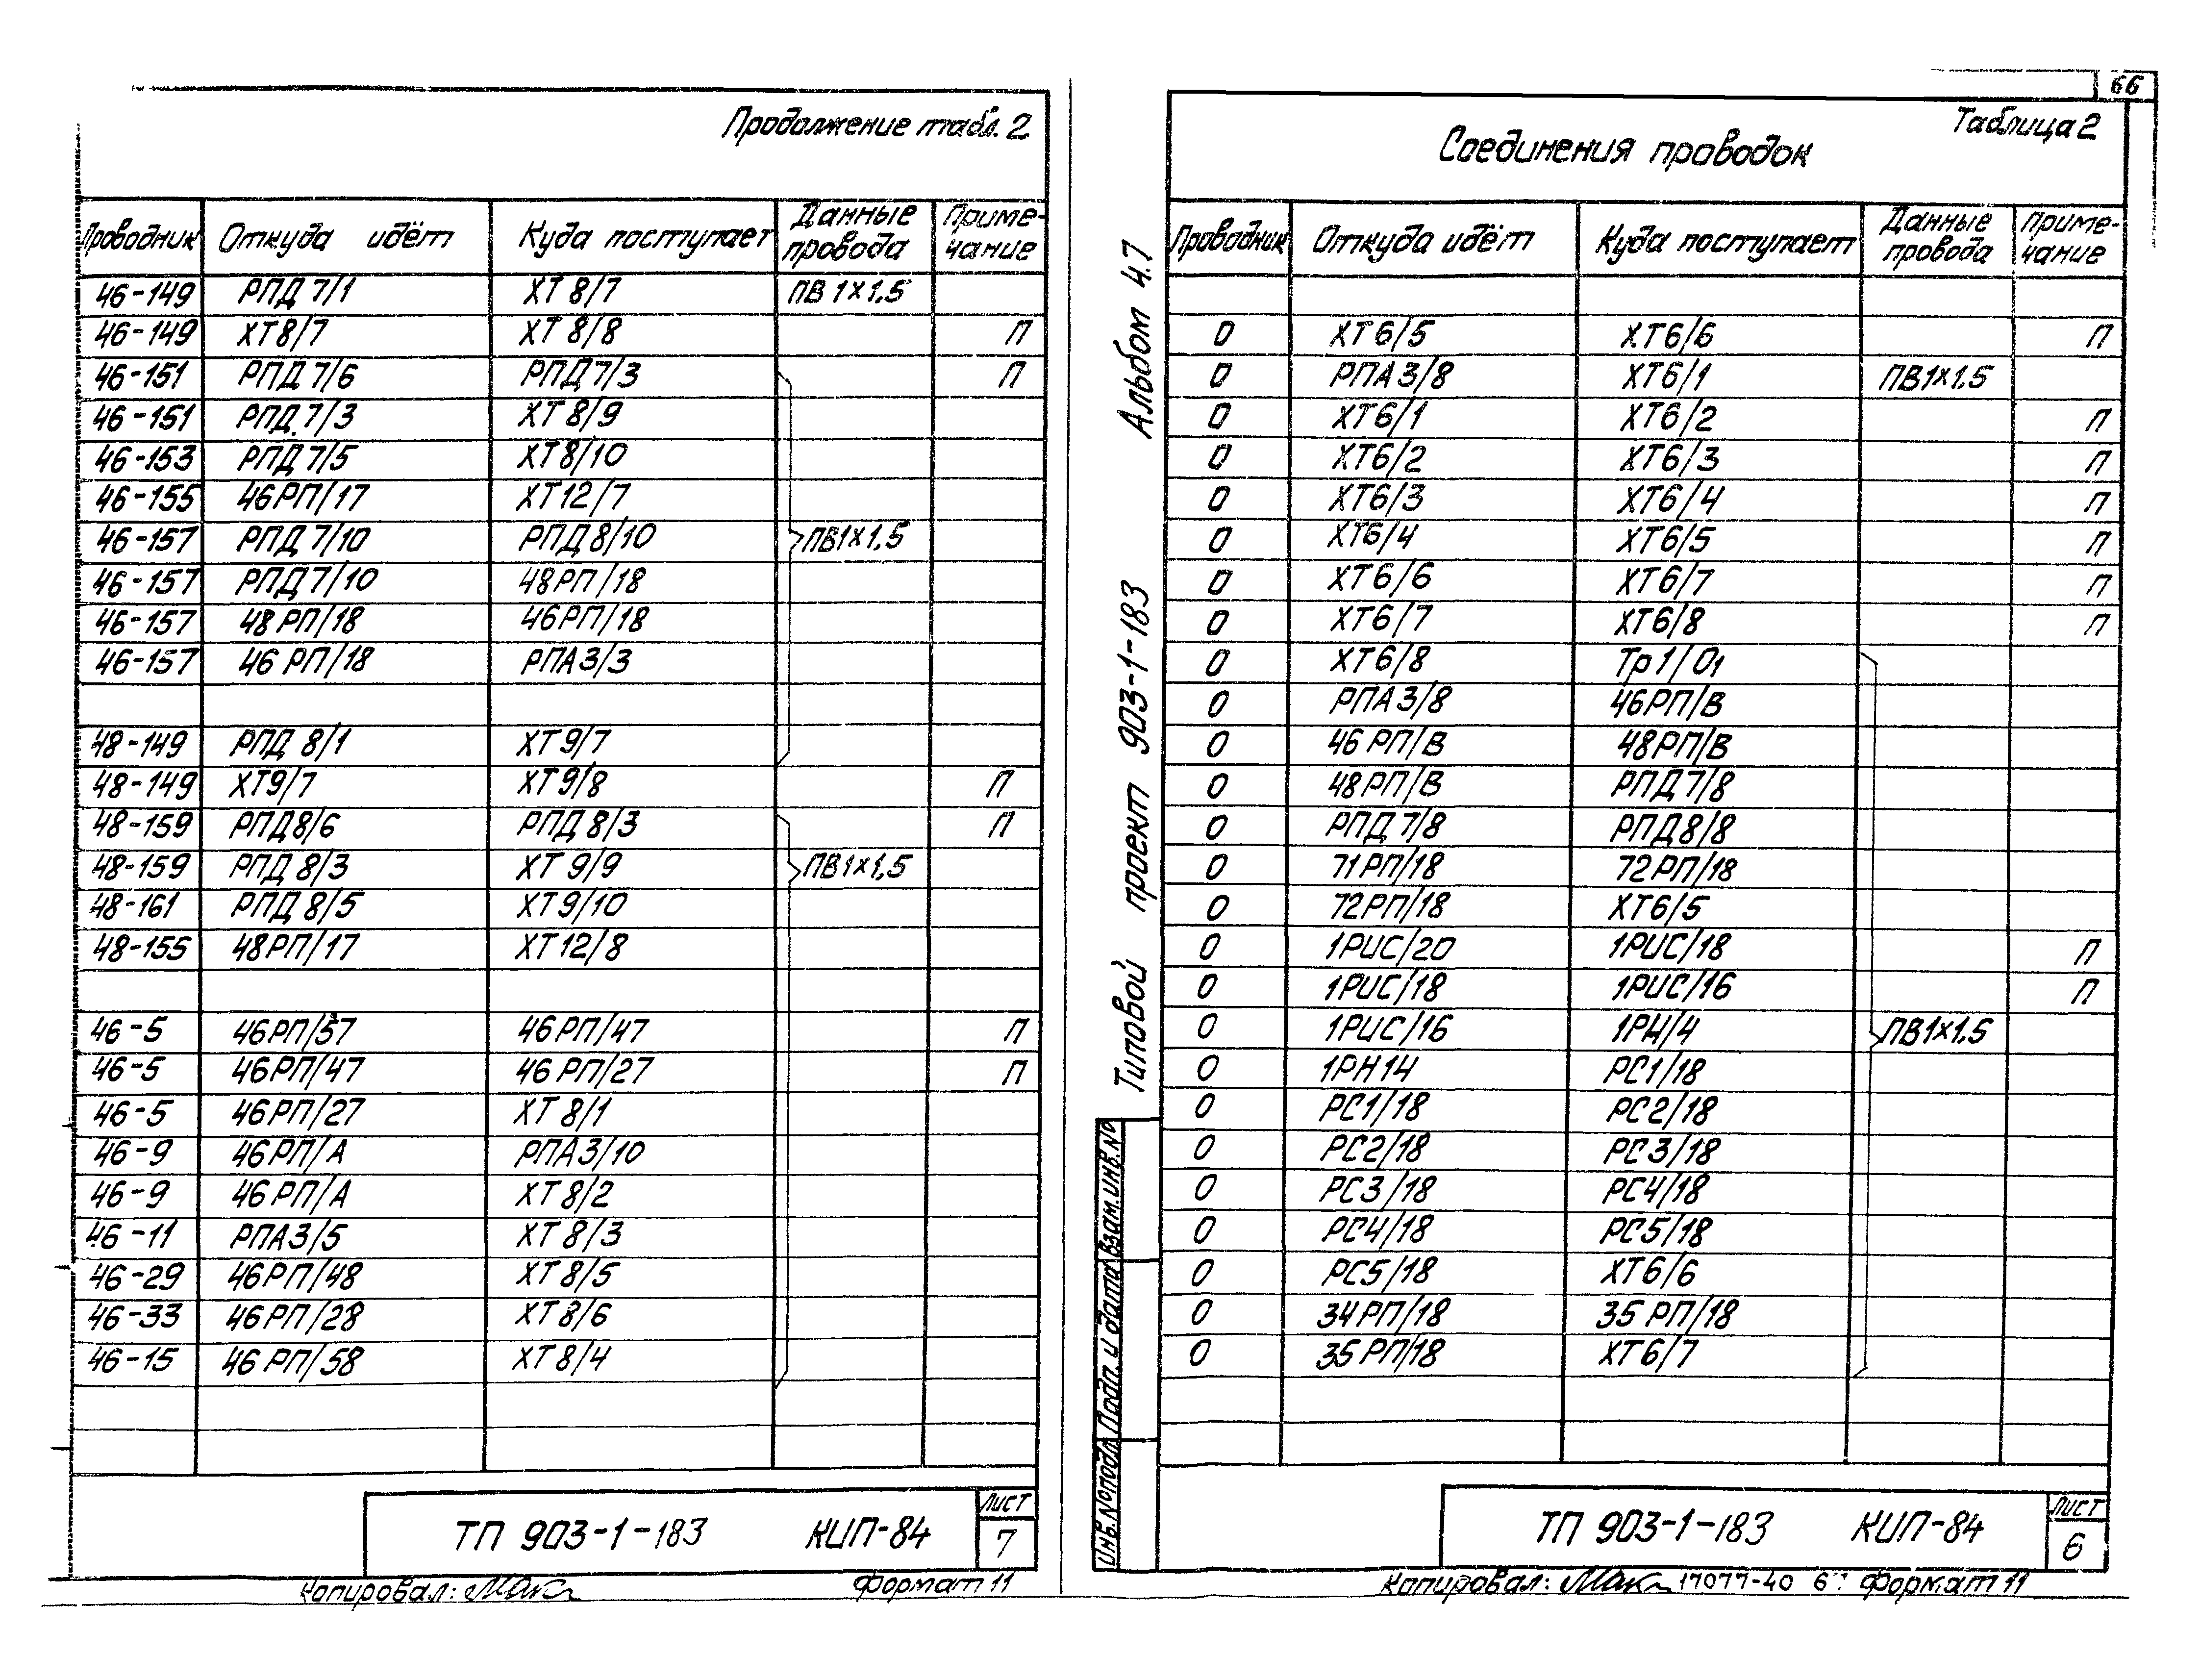 Продолжение табл. 2
Проводник Откуда идёт Куда поступает Данные провода Приме-чание
46-149 РПД 7/1 ХТ 8/7 ПВ 1×1,5
46-149 ХТ8/7 ХТ 8/8 П
46-151 РПД 7/6 РПД 7/3 П
46-151 РПД 7/3 ХТ 8/9
46-153 РПД 7/5 ХТ8/10
46-155 46РП/17 ХТ12/7
46-157 РПД 7/10 РПД 8/10 ПВ1×1,5
46-157 РПД 7/10 48РП/18
46-157 48РП/18 46РП/18
46-157 46 РП/18 РПА 3/3
48-149 РПД 8/1 ХТ 9/7
48-149 ХТ9/7 ХТ9/8 П
48-159 РПД8/6 РПД 8/3 П
48-159 РПД 8/3 ХТ 9/9 ПВ1×1,5
48-161 РПД 8/5 ХТ9/10
48-155 48РП/17 ХТ12/8
46-5 46РП/37 46РП/47 П
46-5 46РП/47 46 РП/27 П
46-5 46РП/27 ХТ 8/1
46-9 46РП/А РПА3/10
46-9 46РП/А ХТ 8/2
46-11 РПА3/5 ХТ 8/3
46-29 46РП/48 ХТ 8/5
46-33 46РП/28 ХТ 8/6
46-15 46 РП/58 ХТ 8/4
ТП 903-1-183 КИП-84
лист
7
Копировал:
Формат 11
66
Таблица 2
Соединения проводок
Проводник Откуда идёт Куда поступает Данные провода Приме-чание
0 ХТ6/5 ХТ6/6 П
0 РПА3/8 ХТ6/1 ПВ1×1,5
0 ХТ6/1 ХТ6/2 П
0 ХТ6/2 ХТ6/3 П
0 ХТ6/3 ХТ6/4 П
0 ХТ6/4 ХТ6/5 П
0 ХТ6/6 ХТ6/7 П
0 ХТ6/7 ХТ6/8 П
0 ХТ6/8 Тр1/01
0 РПА3/8 46РП/В
0 46 РП/В 48РП/В
0 48РП/В РПД 7/8
0 РПД 7/8 РПД8/8
0 71РП/18 72РП/18
0 72РП/18 ХТ6/5
0 1РИС/20 1РИС/18 П
0 1РИС/18 1РИС/16 П
0 1РИС/16 1РН/4 ПВ1×1,5
0 1РН14 РС1/18
0 РС1/18 РС2/18
0 РС2/18 РС3/18
0 РС3/18 РС4/18
0 РС4/18 РС5/18
0 РС5/18 ХТ6/6
0 34РП/18 35 РП/18
0 35РП/18 ХТ6/7
Типовой проект 903-1-183 Альбом 4.7
Инв.№подл. Подп. и дата Взам.инв.№
ТП 903-1-183 КИП-84
лист
6
Копировал: 17077-40 Формат 11